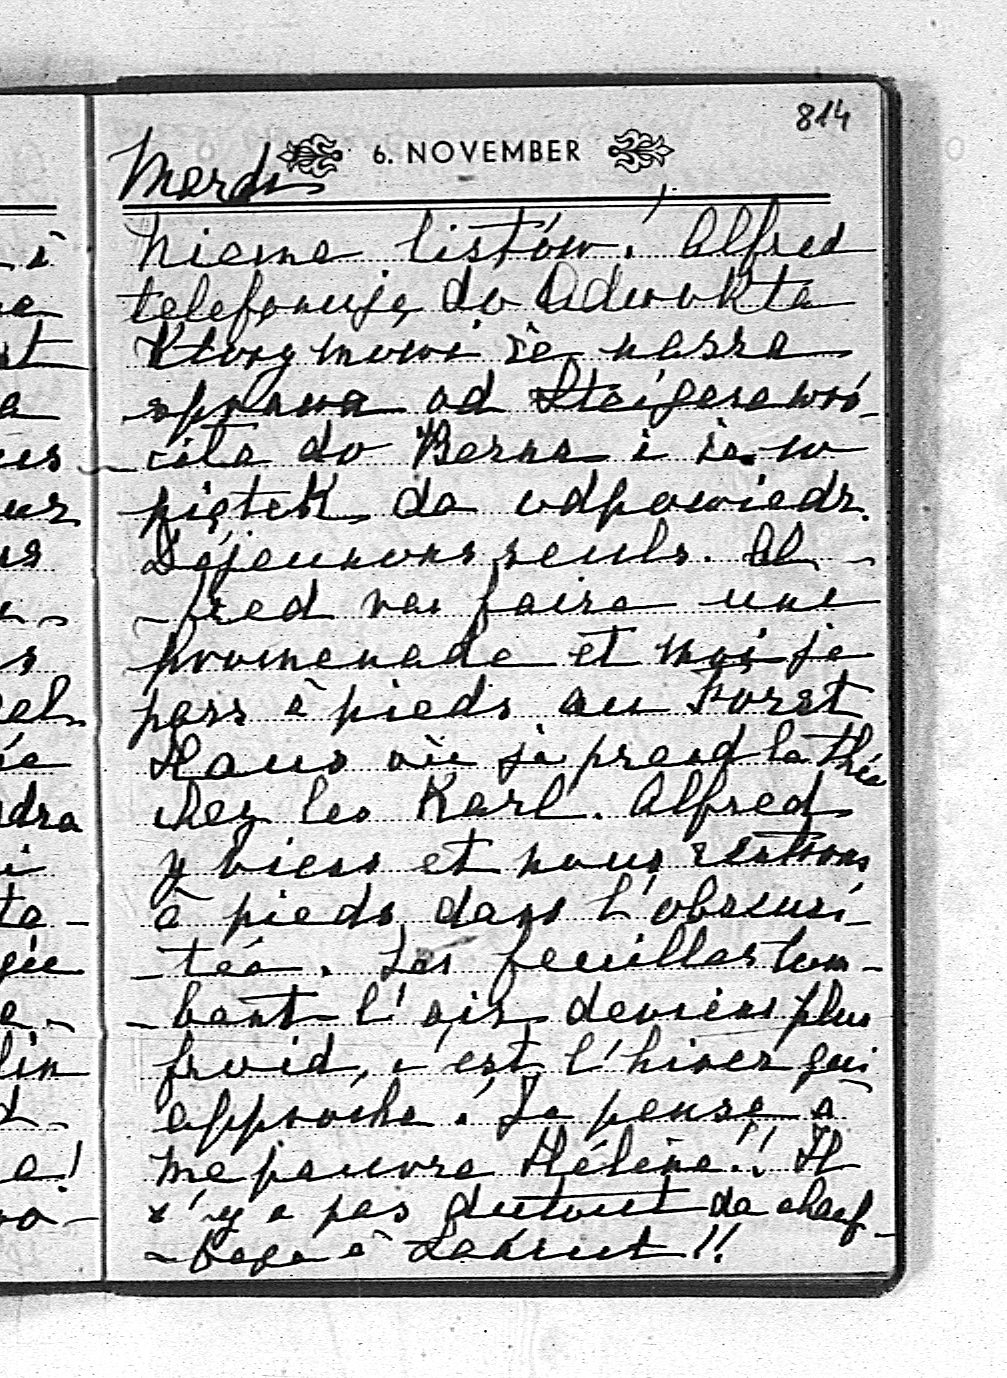 814
6. NOVEMBER
Merdi
Niema listów! Alfred
telefonuje do Adwokta
Który mowi że nasza
sprawa od Steigera wró-
- cila do Berna i że w
piętek da odpowiedz.
Déjeunons seuls. Al -
- fred vas faire une
promenade et moi je
pars à pieds au Forst
Haus où je prend la thée
chez les Karl. Alfred
y viens et nous rentrons
à pieds dans l'obscuri -
- tée. Les feuilles tom -
- bent l'air deviens plus
froid, c'est l'hiver qui
approche! Je pense à
me pauvre Hélène!! Il
n'y a pas dutout de chauf -
- fage à